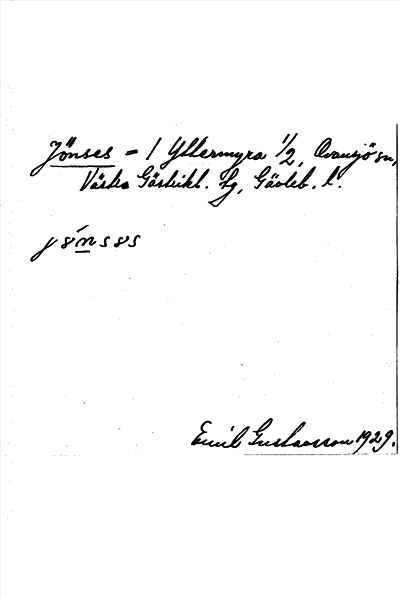 Jönses = 1 Yttermyra 1/2, Ovansjö sn,
Västra Gästrikl. tg, Gävleb. l.
Emil Gustavsson 1929.